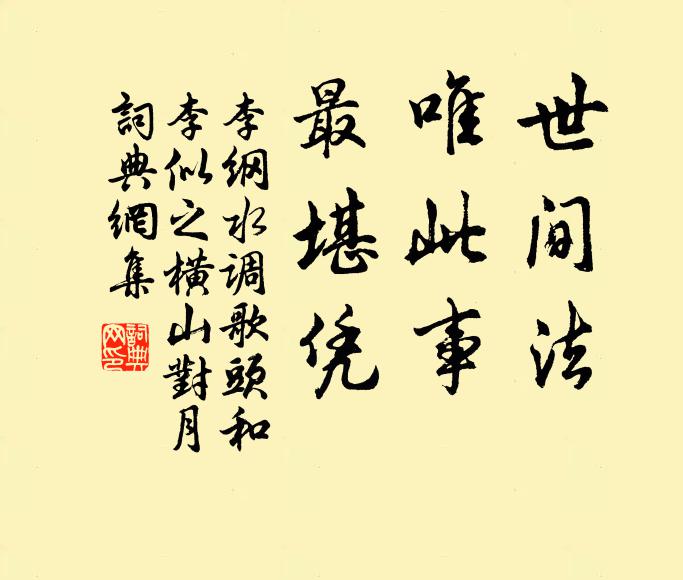 世间法
唯此事
最堪凭
李纲水调歌头和
李似之横山對月
詞典網集
詞典
网印